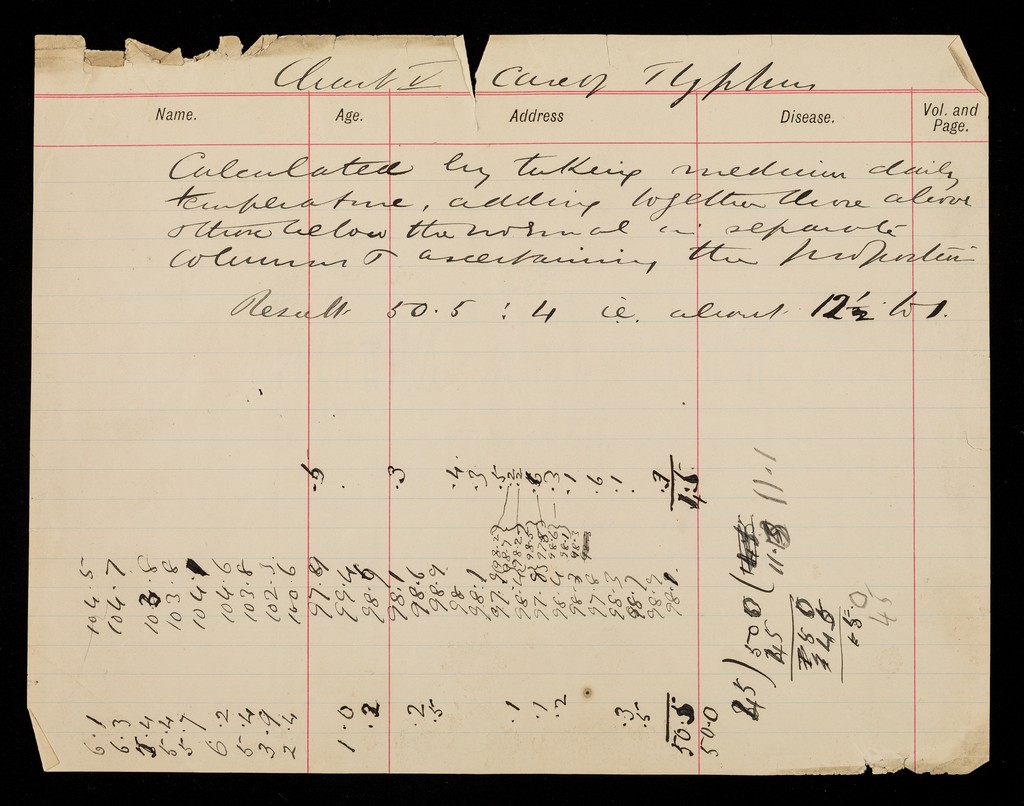 Chart V Case of Typhus
Name. Age. Address Disease. Vol. and Page.
Calculated by taking medium daily
temperature, adding together those above
& those below the normal in separate
columns & ascertaining the proportion
Result 50.5 : 4 i.e. about 12½ to 1.
.6 .3 .4 .3 .5 .2 .6 .3 .1 .6 .1
4.5
11.1
104.5
104.7
103.8
103.8
104.1
104.6
103.8
102.5
100.6
97.9
99.4
98.9
98.1
98.6
98.9
98
98.1
98.4
98.4
98.3
97.8
98.3
98.7
98.9
98.1
45) 500 (
45
50
45
50
45
6.1
6.3
5.4
5.4
5.7
6.2
5.4
3.9
2.4
1.0
.2
.2
.5
.1
.1
.2
.3
.5
50.5
50.0